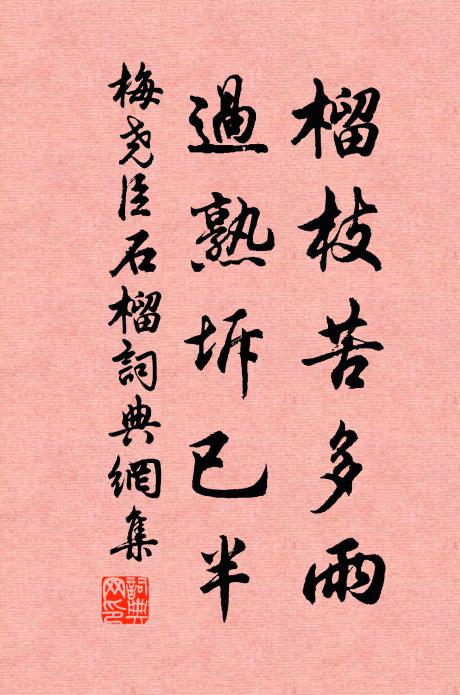 榴枝苦多雨
過熟坼已半
梅堯臣石榴詞典網集
詞典網印